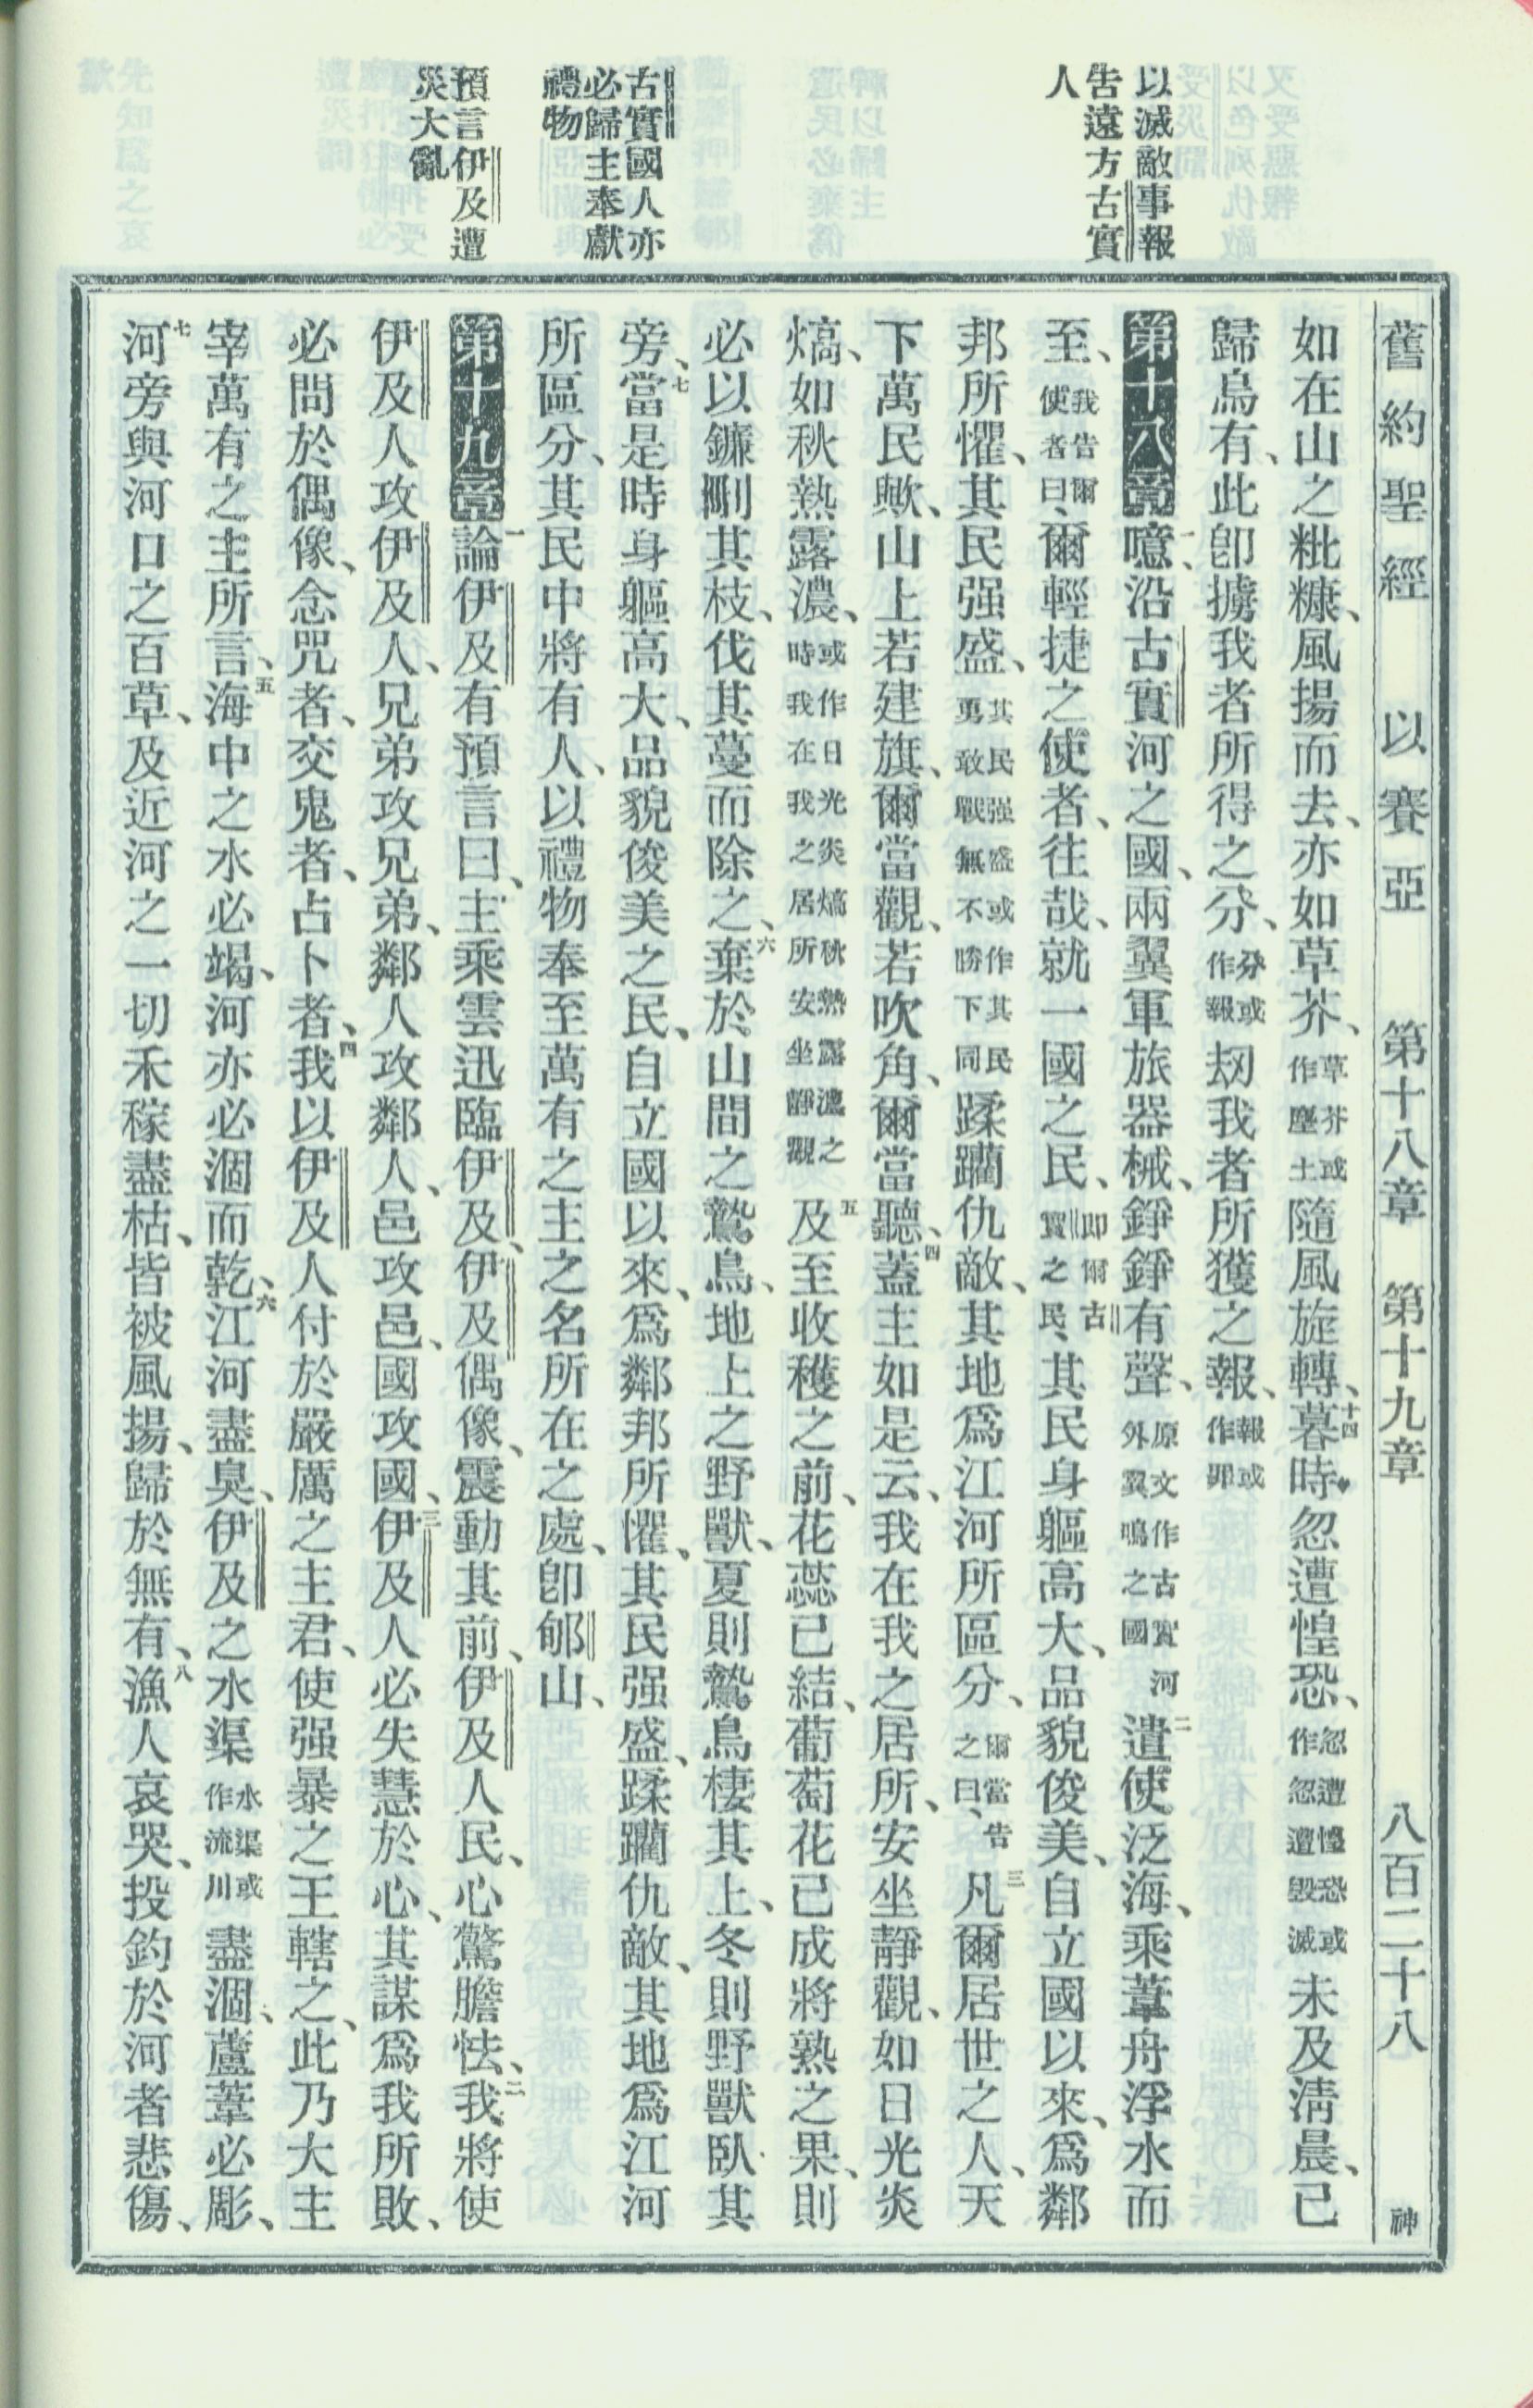 舊約聖經 以賽亞 第十八章 第十九章 八百二十八 神
以滅敵事報
告遠方古實
人
古實國人亦
必歸主奉獻
禮物
預言伊及遭
災大亂
如在山之粃糠、風揚而去、亦如草芥、草芥或作塵土隨風旋轉、十四暮時忽遭惶恐、忽遭惶恐或作忽遭毀滅未及淸晨、已
歸烏有、此卽擄我者所得之分、分或作報刼我者所獲之報、報或作罪
第十八章一噫、沿古實河之國、兩翼軍旅器械、錚錚有聲、原文作古實河外翼鳴之國二遣使泛海、乘葦舟浮水而
至、我告爾使者曰、爾輕捷之使者、往哉、就一國之民、卽爾古實之民、其民身軀高大、品貌俊美、自立國以來、爲鄰
邦所懼、其民强盛、其民强盛或作其民勇敢戰無不勝下同蹂躪仇敵、其地爲江河所區分、爾當告之曰、三凡爾居世之人、天
下萬民歟、山上若建旗、爾當觀、若吹角、爾當聽、四蓋主如是云、我在我之居所、安坐靜觀、如日光炎
熇、如秋熱露濃、或作日光炎熇秋熱露濃之時我在我之居所安坐靜觀五及至收穫之前、花蕊已結、葡萄花已成將熟之果、則
必以鐮剛其枝、伐其蔓而除之、六棄於山間之鷙鳥、地上之野獸、夏則鷙鳥棲其上、冬則野獸臥其
旁、七當是時身軀高大、品貌俊美之民、自立國以來、爲鄰邦所懼、其民强盛、蹂躪仇敵、其地爲江河
所區分、其民中將有人、以禮物奉至萬有之主之名所在之處、卽郇山、
第十九章一論伊及有預言曰、主乘雲迅臨伊及、伊及偶像、震動其前、伊及人民、心驚膽怯、二我將使
伊及人攻伊及人、兄弟攻兄弟、鄰人攻鄰人、邑攻邑、國攻國、三伊及人必失慧於心、其謀爲我所敗、
必問於偶像、念咒者、交鬼者、占卜者、四我以伊及人付於嚴厲之主君、使强暴之王轄之、此乃大主
宰萬有之主所言、五海中之水必竭、河亦必涸而乾、六江河盡臭、伊及之水渠水渠或作流川盡涸、蘆葦必彫、
七河旁與河口之百草、及近河之一切禾稼盡枯、皆被風揚、歸於無有、八漁人哀哭、投釣於河者悲傷、